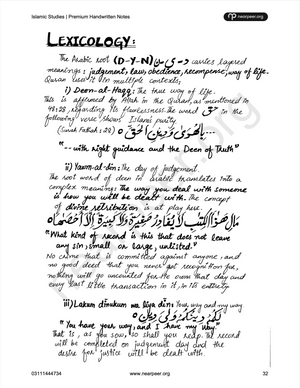 Islamic Studies | Premium Handwritten Notes
nearpeer.org
LEXICOLOGY:
The Arabic root (D-Y-N) د - ي - ن carries layered
meanings: judgement, law, obedience, recompense, way of life.
Quran uses it in multiple contexts,
i) Deen-al-Haqq: The true way of life.
This is affirmed by Allah in the Quran, as mentioned in
48:28, regarding its flawlessness. The word حق in the
following verse shows Islam's purity
(Surah Fatiha: 28) ...بِالْهُدَىٰ وَدِينِ الْحَقِّ
"--- with right guidance and the Deen of Truth"
ii) Yawm-al-din: The day of judgement.
The root word of deen in arabic translates into a
complex meaning: The way you deal with someone
is how you will be dealt with. The concept
of divine retribution is at play here.
مَالِ هَٰذَا الْكِتَٰبِ لَا يُغَادِرُ صَغِيرَةً وَلَا كَبِيرَةً إِلَّا أَحْصَاهَا
"What kind of record is this that does not leave
any sin, small or large, unlisted."
No crime that is committed against anyone, and
no good deed that you never got recognition for,
nothing will go uncounted for. We own that day and
every last little transaction in it, in its entirety
iii) Lakum dinukum wa liya din: Your way and my way
لَكُمْ دِينُكُمْ وَلِيَ دِينِ
"You have your way, and I have my way"
That is, as you sow, so shall you reap. The record
will be completed on judgement day and the
desire for justice will be dealt with.
03111444734
www.nearpeer.org
32